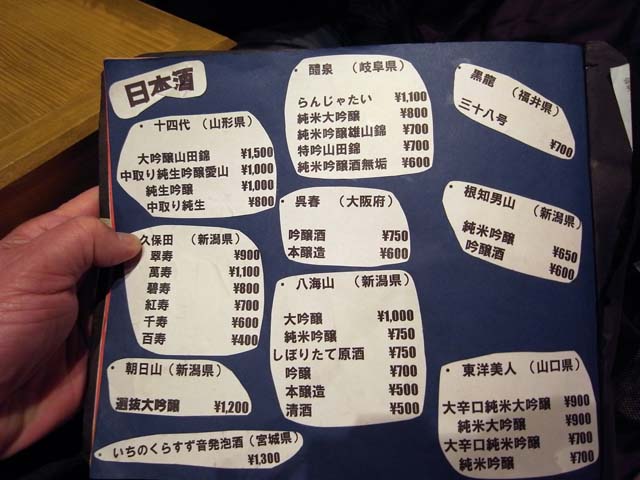 日本酒
・十四代 (山形県)
大吟醸山田錦 ¥1,500
中取り純生吟醸愛山 ¥1,000
純生吟醸 ¥1,000
中取り純生 ¥800
久保田 (新潟県)
翠寿 ¥900
萬寿 ¥1,100
碧寿 ¥800
紅寿 ¥700
千寿 ¥600
百寿 ¥400
・朝日山 (新潟県)
選抜大吟醸 ¥1,200
・いちのくらすず音発泡酒 (宮城県)
¥1,300
・醴泉 (岐阜県)
らんじゃたい ¥1,100
純米大吟醸 ¥800
純米吟醸雄山錦 ¥700
特吟山田錦 ¥700
純米吟醸酒無垢 ¥600
・呉春 (大阪府)
吟醸酒 ¥750
本醸造 ¥600
・八海山 (新潟県)
大吟醸 ¥1,000
純米吟醸 ¥750
しぼりたて原酒 ¥750
吟醸 ¥700
本醸造 ¥500
清酒 ¥500
・黒龍 (福井県)
三十八号 ¥700
・根知男山 (新潟県)
純米吟醸 ¥650
吟醸酒 ¥600
・東洋美人 (山口県)
大辛口純米大吟醸 ¥900
純米大吟醸 ¥900
大辛口純米吟醸 ¥700
純米吟醸 ¥700